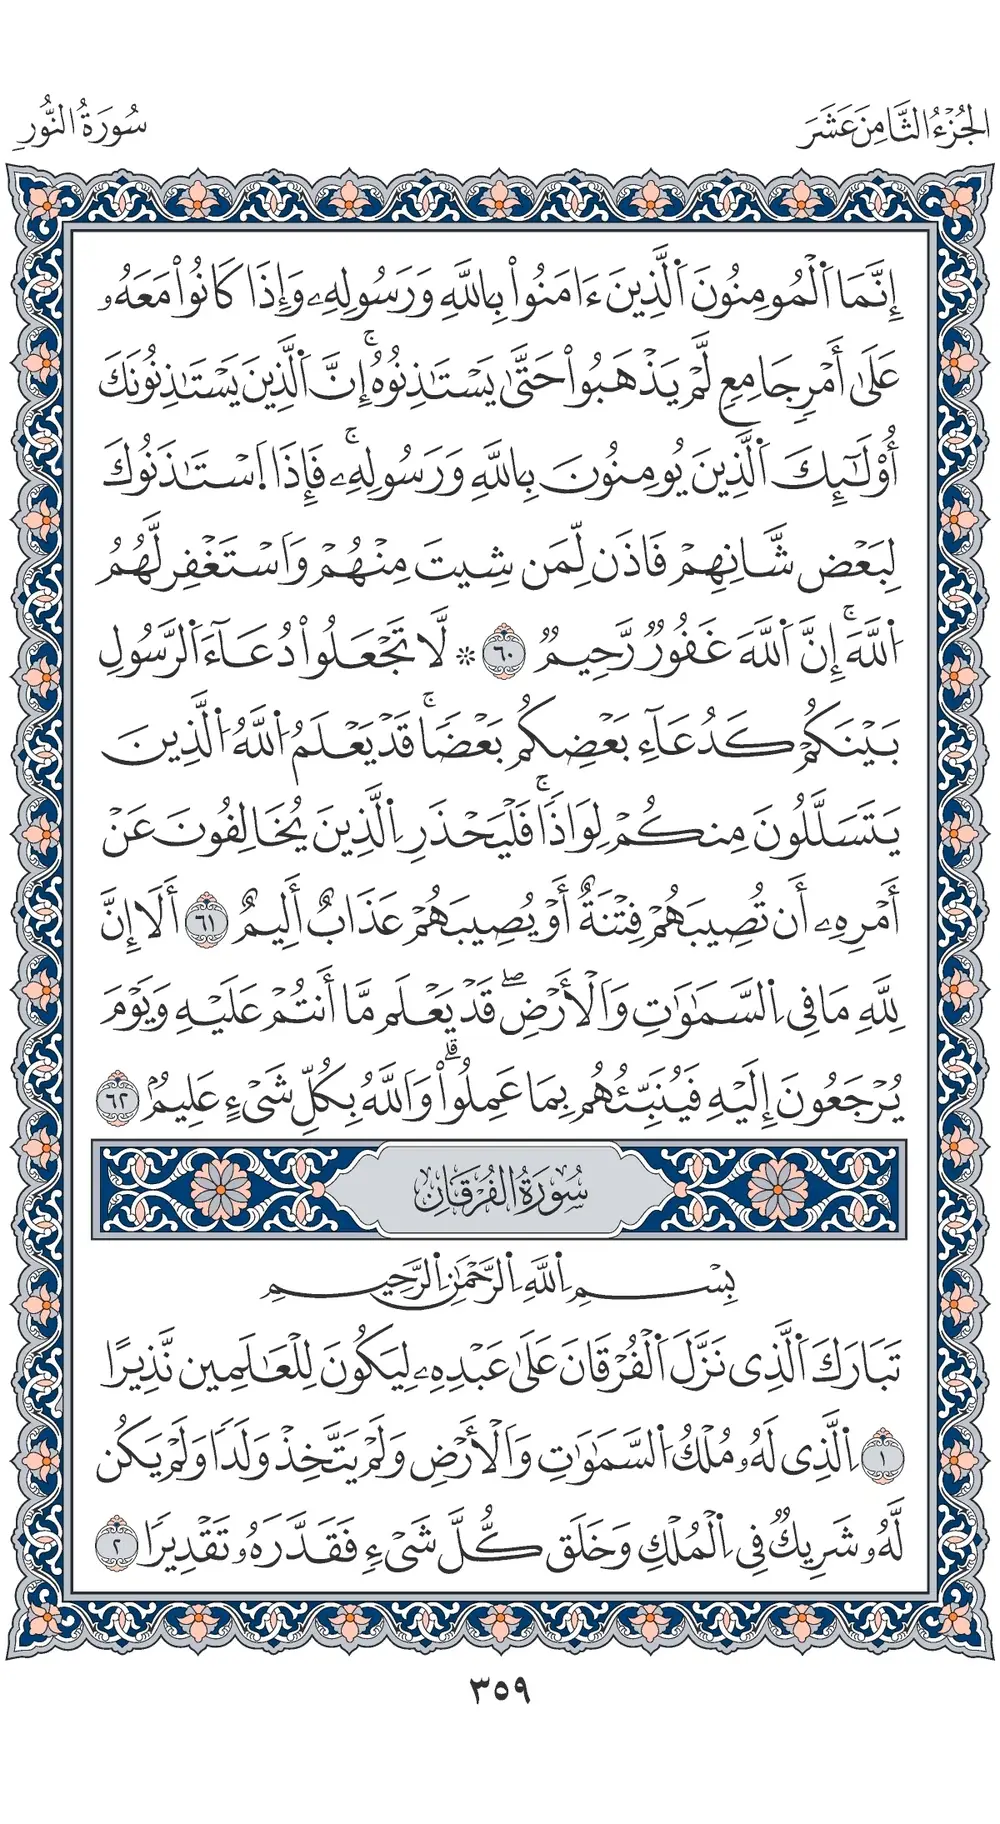 الجُزْءُ الثَّامِنَ عَشَرَ
سُورَةُ النُّورِ
إِنَّمَا اَ۬لْمُومِنُونَ اَ۬لَّذِينَ ءَامَنُواْ بِاللَّهِ وَرَسُولِهِۦ وَإِذَا كَانُواْ مَعَهُۥ
عَلَىٰ أَمْرٖ جَامِعٖ لَّمْ يَذْهَبُواْ حَتَّىٰ يَسْتَٰذِنُوهُۚ إِنَّ اَ۬لَّذِينَ يَسْتَٰذِنُونَكَ
أُوْلَٰٓئِكَ اَ۬لَّذِينَ يُومِنُونَ بِاللَّهِ وَرَسُولِهِۦۚ فَإِذَا اَ۪سْتَٰذَنُوكَ
لِبَعْض شَّانِهِمْ فَاذَن لِّمَن شِيتَ مِنْهُمْ وَاَسْتَغْفِر لَّهُمُ
اُ۬للَّهَۚ إِنَّ اَ۬للَّهَ غَفُورٞ رَّحِيمٞ ٦٠ * لَّا تَجْعَلُواْ دُعَآءَ اَ۬لرَّسُولِ
بَيْنَكُمْ كَدُعَآءِ بَعْضِكُم بَعْضٗاۚ قَدْ يَعْلَمُ اُ۬للَّهُ اُ۬لَّذِينَ
يَتَسَلَّلُونَ مِنكُمْ لِوَاذٗاۚ فَلْيَحْذَرِ اِ۬لَّذِينَ يُخَالِفُونَ عَنْ
أَمْرِهِۦ أَن تُصِيبَهُمْ فِتْنَةٌ أَوْ يُصِيبَهُمْ عَذَابٌ أَلِيمٌ ٦١ أَلَا إِنَّ
لِلَّهِ مَا فِى اِ۬لسَّمَٰوَٰتِ وَالْأَرْضِۖ قَدْ يَعْلَم مَّا أَنتُمْ عَلَيْهِ وَيَوْمَ
يُرْجَعُونَ إِلَيْهِ فَيُنَبِّئُهُم بِمَا عَمِلُواْۗ وَاللَّهُ بِكُلِّ شَىْءٍ عَلِيمُۢ ٦٢
سُورَةُ الفُرْقَانِ
بِسْمِ اِ۬للَّهِ اِ۬لرَّحْمَٰنِ اِ۬لرَّحِيمِ
تَبَارَكَ اَ۬لَّذِى نَزَّلَ اَ۬لْفُرْقَانَ عَلَىٰ عَبْدِهِۦ لِيَكُونَ لِلْعَٰلَمِين نَّذِيرًا
١ اِ۬لَّذِى لَهُۥ مُلْكُ اُ۬لسَّمَٰوَٰتِ وَالْأَرْضِ وَلَمْ يَتَّخِذْ وَلَدٗا وَلَمْ يَكُن
لَّهُۥ شَرِيكٞ فِى اِ۬لْمُلْكِ وَخَلَق كُّلَّ شَىْءٖ فَقَدَّرَهُۥ تَقْدِيرٗا ٢
٣٥٩